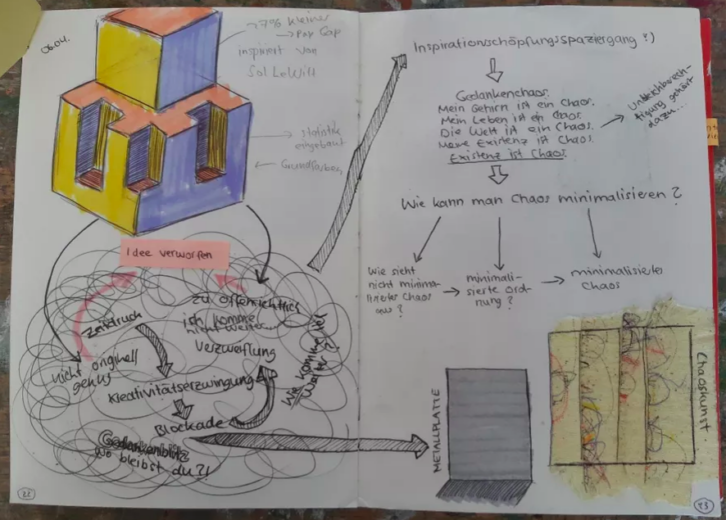 06.04.
7% kleiner
→ Pay Gap
inspiriert von
Sol LeWitt
→ Statistik
eingebaut
← Grundfarben
Idee verworfen
zu offensichtlich
Zeitdruck
ich komme
nicht weiter...
Verzweiflung
nicht originell
genug
Kreativitätserzwingung
Wie komme ich
weiter?
Blockade
Gedankenblitz
wo bleibst du?!
22
Inspirationsschöpfungsspaziergang !)
Gedankenchaos.
Mein Gehirn ist ein Chaos.
Mein Leben ist ein Chaos.
Die Welt ist ein Chaos.
Meine Existenz ist Chaos.
Existenz ist Chaos.
→ Ungleichberech-
tigung gehört
dazu...
Wie kann man Chaos minimalisieren?
Wie sieht
nicht minima-
lisiertes Chaos
aus?
→ minimali-
sierte Ord-
nung?
→ minimalisiertes
Chaos
METALLPLATTE
Chaoskunst.
23